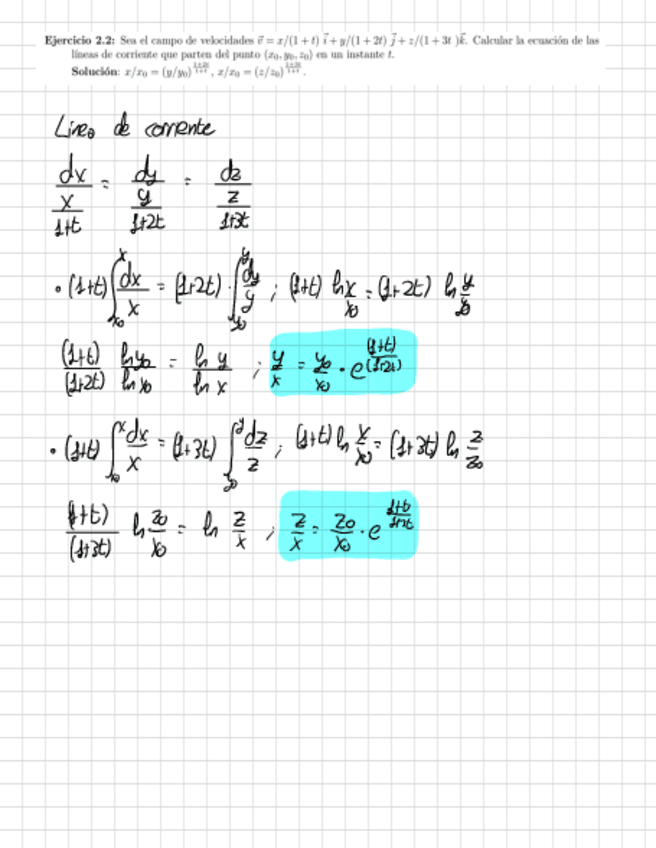 Ejercicio 2.2: Sea el campo de velocidades v⃗ = x/(1 + t) i⃗ + y/(1 + 2t) j⃗ + z/(1 + 3t )k⃗. Calcular la ecuación de las
líneas de corriente que parten del punto (x₀, y₀, z₀) en un instante t.
Solución: x/x₀ = (y/y₀)^((1+2t)/(1+t)), x/x₀ = (z/z₀)^((1+3t)/(1+t)).
Linea de corriente
dx/(x/(1+t)) = dy/(y/(1+2t)) = dz/(z/(1+3t))
• (1+t) ∫_{x₀}^{x} dx/x = (1+2t) · ∫_{y₀}^{y} dy/y ; (1+t) ln x/x₀ = (1+2t) ln y/y₀
(1+t)/(1+2t) ln y₀/ln x₀ = ln y/ln x ; y/x = y₀/x₀ · e^((1+t)/(1+2t))
• (1+t) ∫_{x₀}^{x} dx/x = (1+3t) ∫_{y₀}^{y} dz/z ; (1+t) ln x/x₀ = (1+3t) ln z/z₀
(1+t)/(1+3t) ln z₀/x₀ = ln z/x ; z/x = z₀/x₀ · e